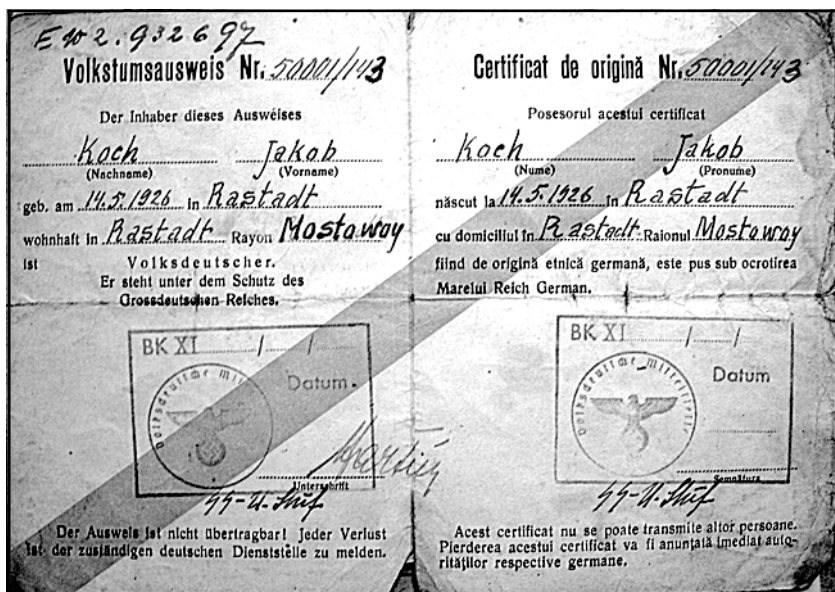 EW 2.932697
Volkstumsausweis Nr. 50001/143
Der Inhaber dieses Ausweises
Koch Jakob
(Nachname) (Vorname)
geb. am 14.5.1926 in Rastadt
wohnhaft in Rastadt Rayon Mostoway
ist Volksdeutscher.
Er steht unter dem Schutz des
Grossdeutschen Reiches.
BK XI / /
Datum
Volksdeutsche Mittelstelle
Unterschrift
SS-U-Stuf
Der Ausweis ist nicht übertragbar! Jeder Verlust
ist der zuständigen deutschen Dienststelle zu melden.
Certificat de origină Nr. 50001/143
Posesorul acestui certificat
Koch Jakob
(Nume) (Pronume)
născut la 14.5.1926 în Rastadt
cu domiciliul în Rastadt Raionul Mostoway
fiind de origină etnică germană, este pus sub ocrotirea
Marelui Reich German.
BK XI / /
Datum
Volksdeutsche Mittelstelle
Semnătura
SS-U-Stuf
Acest certificat nu se poate transmite altor persoane.
Pierderea acestui certificat va fi anunțată imediat auto-
rităților respective germane.